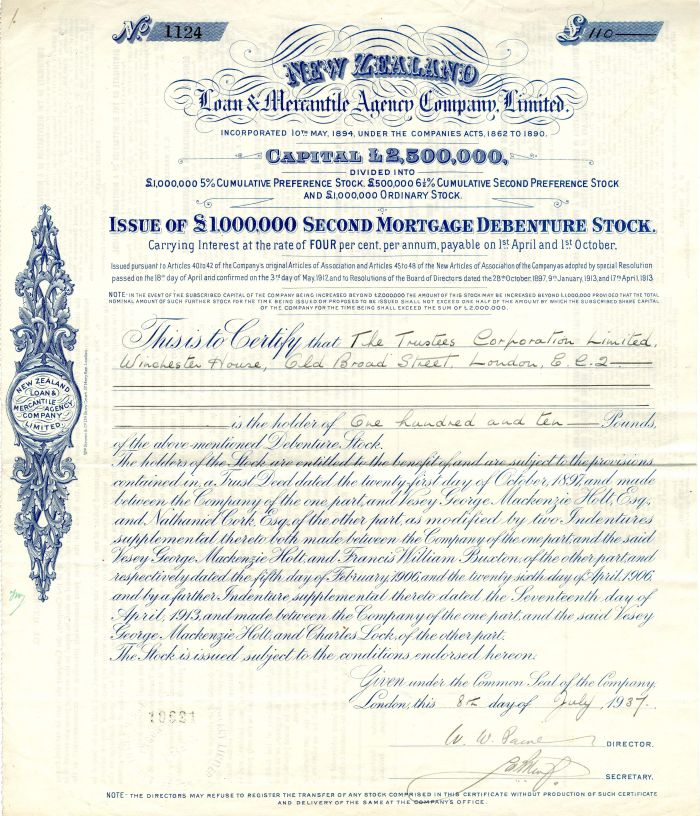 No. 1124
£ 110
NEW ZEALAND
Loan & Mercantile Agency Company, Limited.
INCORPORATED 10TH MAY, 1894, UNDER THE COMPANIES ACTS, 1862 TO 1890.
CAPITAL £2,500,000,
DIVIDED INTO
£1,000,000 5% CUMULATIVE PREFERENCE STOCK. £500,000 6½% CUMULATIVE SECOND PREFERENCE STOCK
AND £1,000,000 ORDINARY STOCK.
ISSUE OF £1,000,000 SECOND MORTGAGE DEBENTURE STOCK.
Carrying Interest at the rate of FOUR per cent. per annum, payable on 1st April and 1st October.
Issued pursuant to Articles 40 to 42 of the Company's original Articles of Association and Articles 45 to 48 of the New Articles of Association of the Company as adopted by special Resolution
passed on the 18th day of April and confirmed on the 3rd day of May, 1912 and to Resolutions of the Board of Directors dated the 28th October, 1897, 9th January, 1913, and 17th April, 1913.
NOTE: IN THE EVENT OF THE SUBSCRIBED CAPITAL OF THE COMPANY BEING INCREASED BEYOND £2,000,000 THE AMOUNT OF THIS STOCK MAY BE INCREASED BEYOND £1,000,000 PROVIDED THAT THE TOTAL
NOMINAL AMOUNT OF SUCH FURTHER STOCK FOR THE TIME BEING ISSUED OR PROPOSED TO BE ISSUED SHALL NOT EXCEED ONE HALF OF THE AMOUNT BY WHICH THE SUBSCRIBED SHARE CAPITAL
OF THE COMPANY FOR THE TIME BEING SHALL EXCEED THE SUM OF £2,000,000.
This is to Certify that The Trustees Corporation Limited,
Winchester House, Old Broad Street, London, E.C.2
is the holder of One hundred and ten Pounds,
of the above-mentioned Debenture Stock.
The holders of the Stock are entitled to the benefit of, and are subject to the provisions
contained in, a Trust Deed dated the twenty-first day of October, 1897, and made
between the Company of the one part, and Vesey George Mackenzie Holt, Esq.,
and Nathaniel Cork, Esq., of the other part, as modified by two Indentures
supplemental thereto both made between the Company of the one part, and the said
Vesey George Mackenzie Holt, and Francis William Buxton, of the other part, and
respectively dated the fifth day of February, 1906, and the twenty sixth day of April, 1906,
and by a further Indenture supplemental thereto dated the Seventeenth day of
April, 1913, and made between the Company of the one part, and the said Vesey
George Mackenzie Holt, and Charles Lock, of the other part.
The Stock is issued subject to the conditions endorsed hereon.
Given under the Common Seal of the Company,
London, this 8th day of July, 1937.
W. W. Paine DIRECTOR.
SECRETARY.
NOTE - THE DIRECTORS MAY REFUSE TO REGISTER THE TRANSFER OF ANY STOCK COMPRISED IN THIS CERTIFICATE WITHOUT PRODUCTION OF SUCH CERTIFICATE
AND DELIVERY OF THE SAME AT THE COMPANY'S OFFICE.
NEW ZEALAND
LOAN &
MERCANTILE AGENCY
COMPANY
LIMITED.